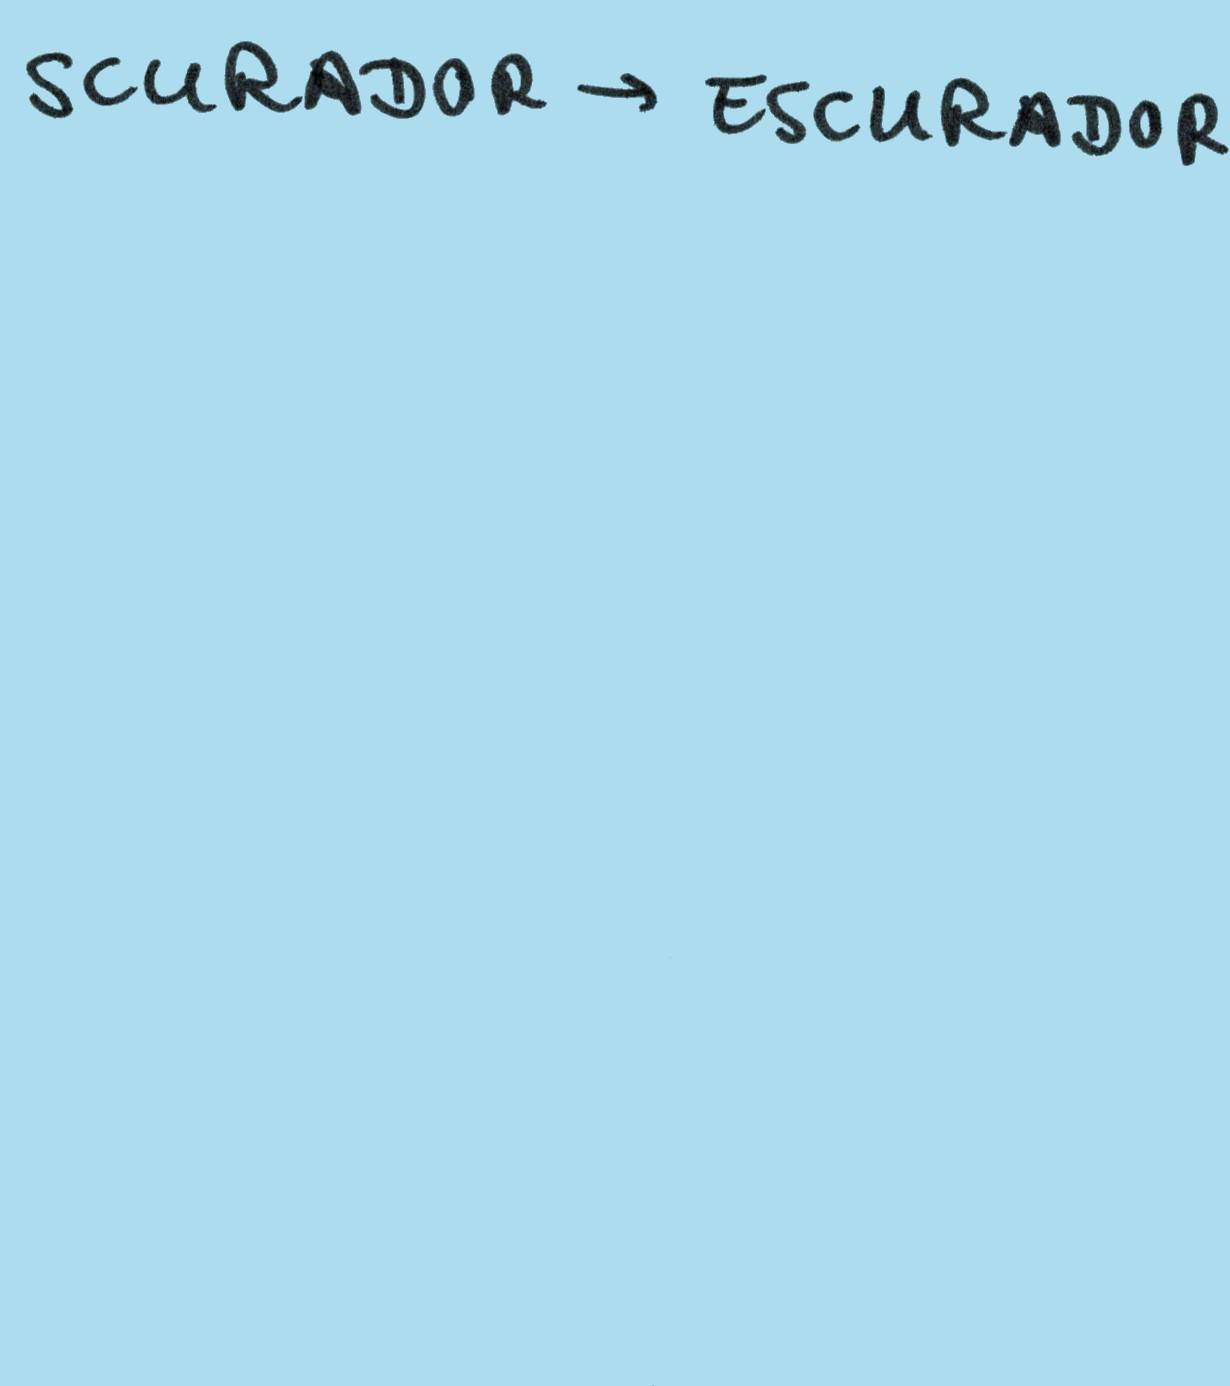 SCURADOR → ESCURADOR